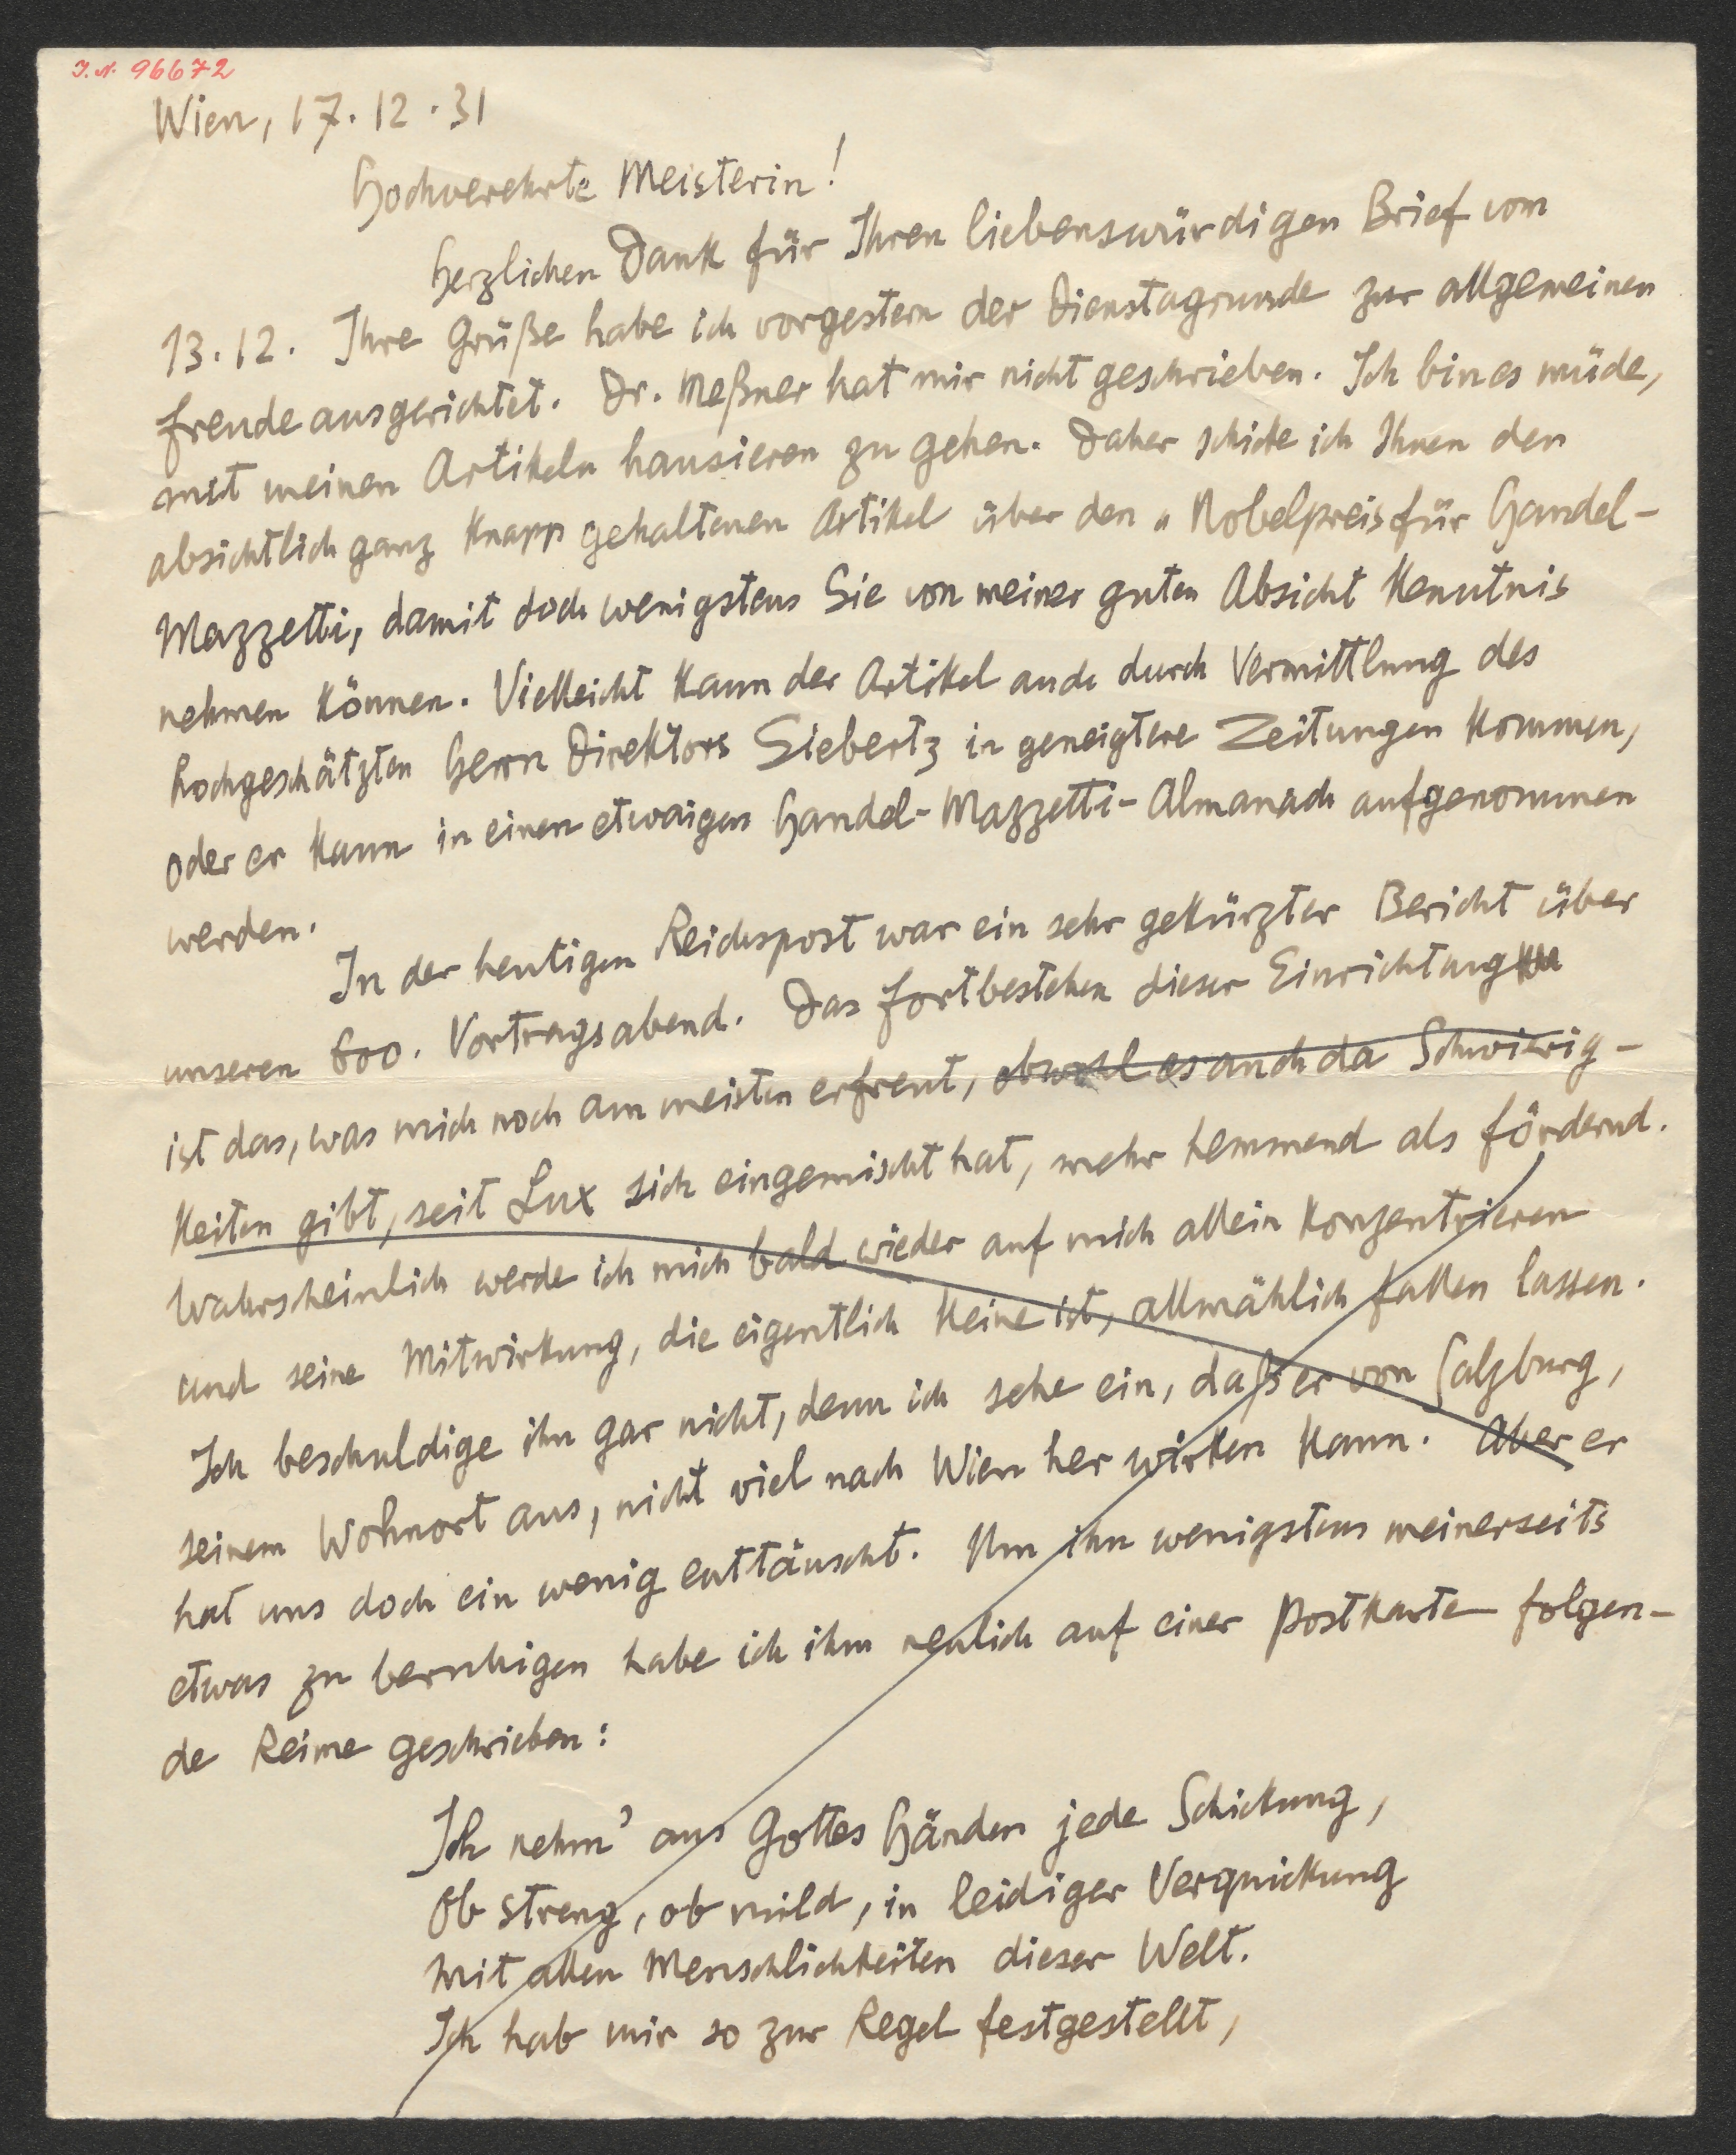 I. N. 96672
Wien, 17. 12. 31
Hochverehrte Meisterin!
Herzlichen Dank für Ihren liebenswürdigen Brief vom
13. 12. Ihre Grüße habe ich vorgestern der Dienstagrunde zur allgemeinen
Freude ausgerichtet. Dr. Meßner hat mir nicht geschrieben. Ich bin es müde,
mit meinen Artikeln hausieren zu gehen. Daher schicke ich Ihnen den
absichtlich ganz knapp gehaltenen Artikel über den „Nobelpreis für Handel-
Mazzetti, damit doch wenigstens Sie von meiner guten Absicht Kenntnis
nehmen können. Vielleicht kann der Artikel auch durch Vermittlung des
hochgeschätzten Herrn Direktors Siebertz in geneigtere Zeitungen kommen,
oder er kann in einen etwaigen Handel-Mazzetti-Almanach aufgenommen
werden.
In der heutigen Reichspost war ein sehr gekürzter Bericht über
unseren 600. Vortragsabend. Das Fortbestehen dieser Einrichtung
ist das, was mich noch am meisten erfreut, obwohl es auch da Schwierig-
keiten gibt, seit Lux sich eingemischt hat, mehr hemmend als fördernd.
Wahrscheinlich werde ich mich bald wieder auf mich allein konzentrieren
und seine Mitwirkung, die eigentlich keine ist, allmählich fallen lassen.
Ich beschuldige ihn gar nicht, denn ich sehe ein, daß er von Salzburg,
seinem Wohnort aus, nicht viel nach Wien her wirken kann. Aber er
hat uns doch ein wenig enttäuscht. Um ihn wenigstens meinerseits
etwas zu beruhigen habe ich ihm neulich auf einer Postkarte folgen-
de Reime geschrieben:
Ich nehm' aus Gottes Händen jede Schickung,
Ob streng, ob mild, in leidiger Verquickung
Mit allen Menschlichkeiten dieser Welt.
Ich hab mir so zur Regel festgestellt,